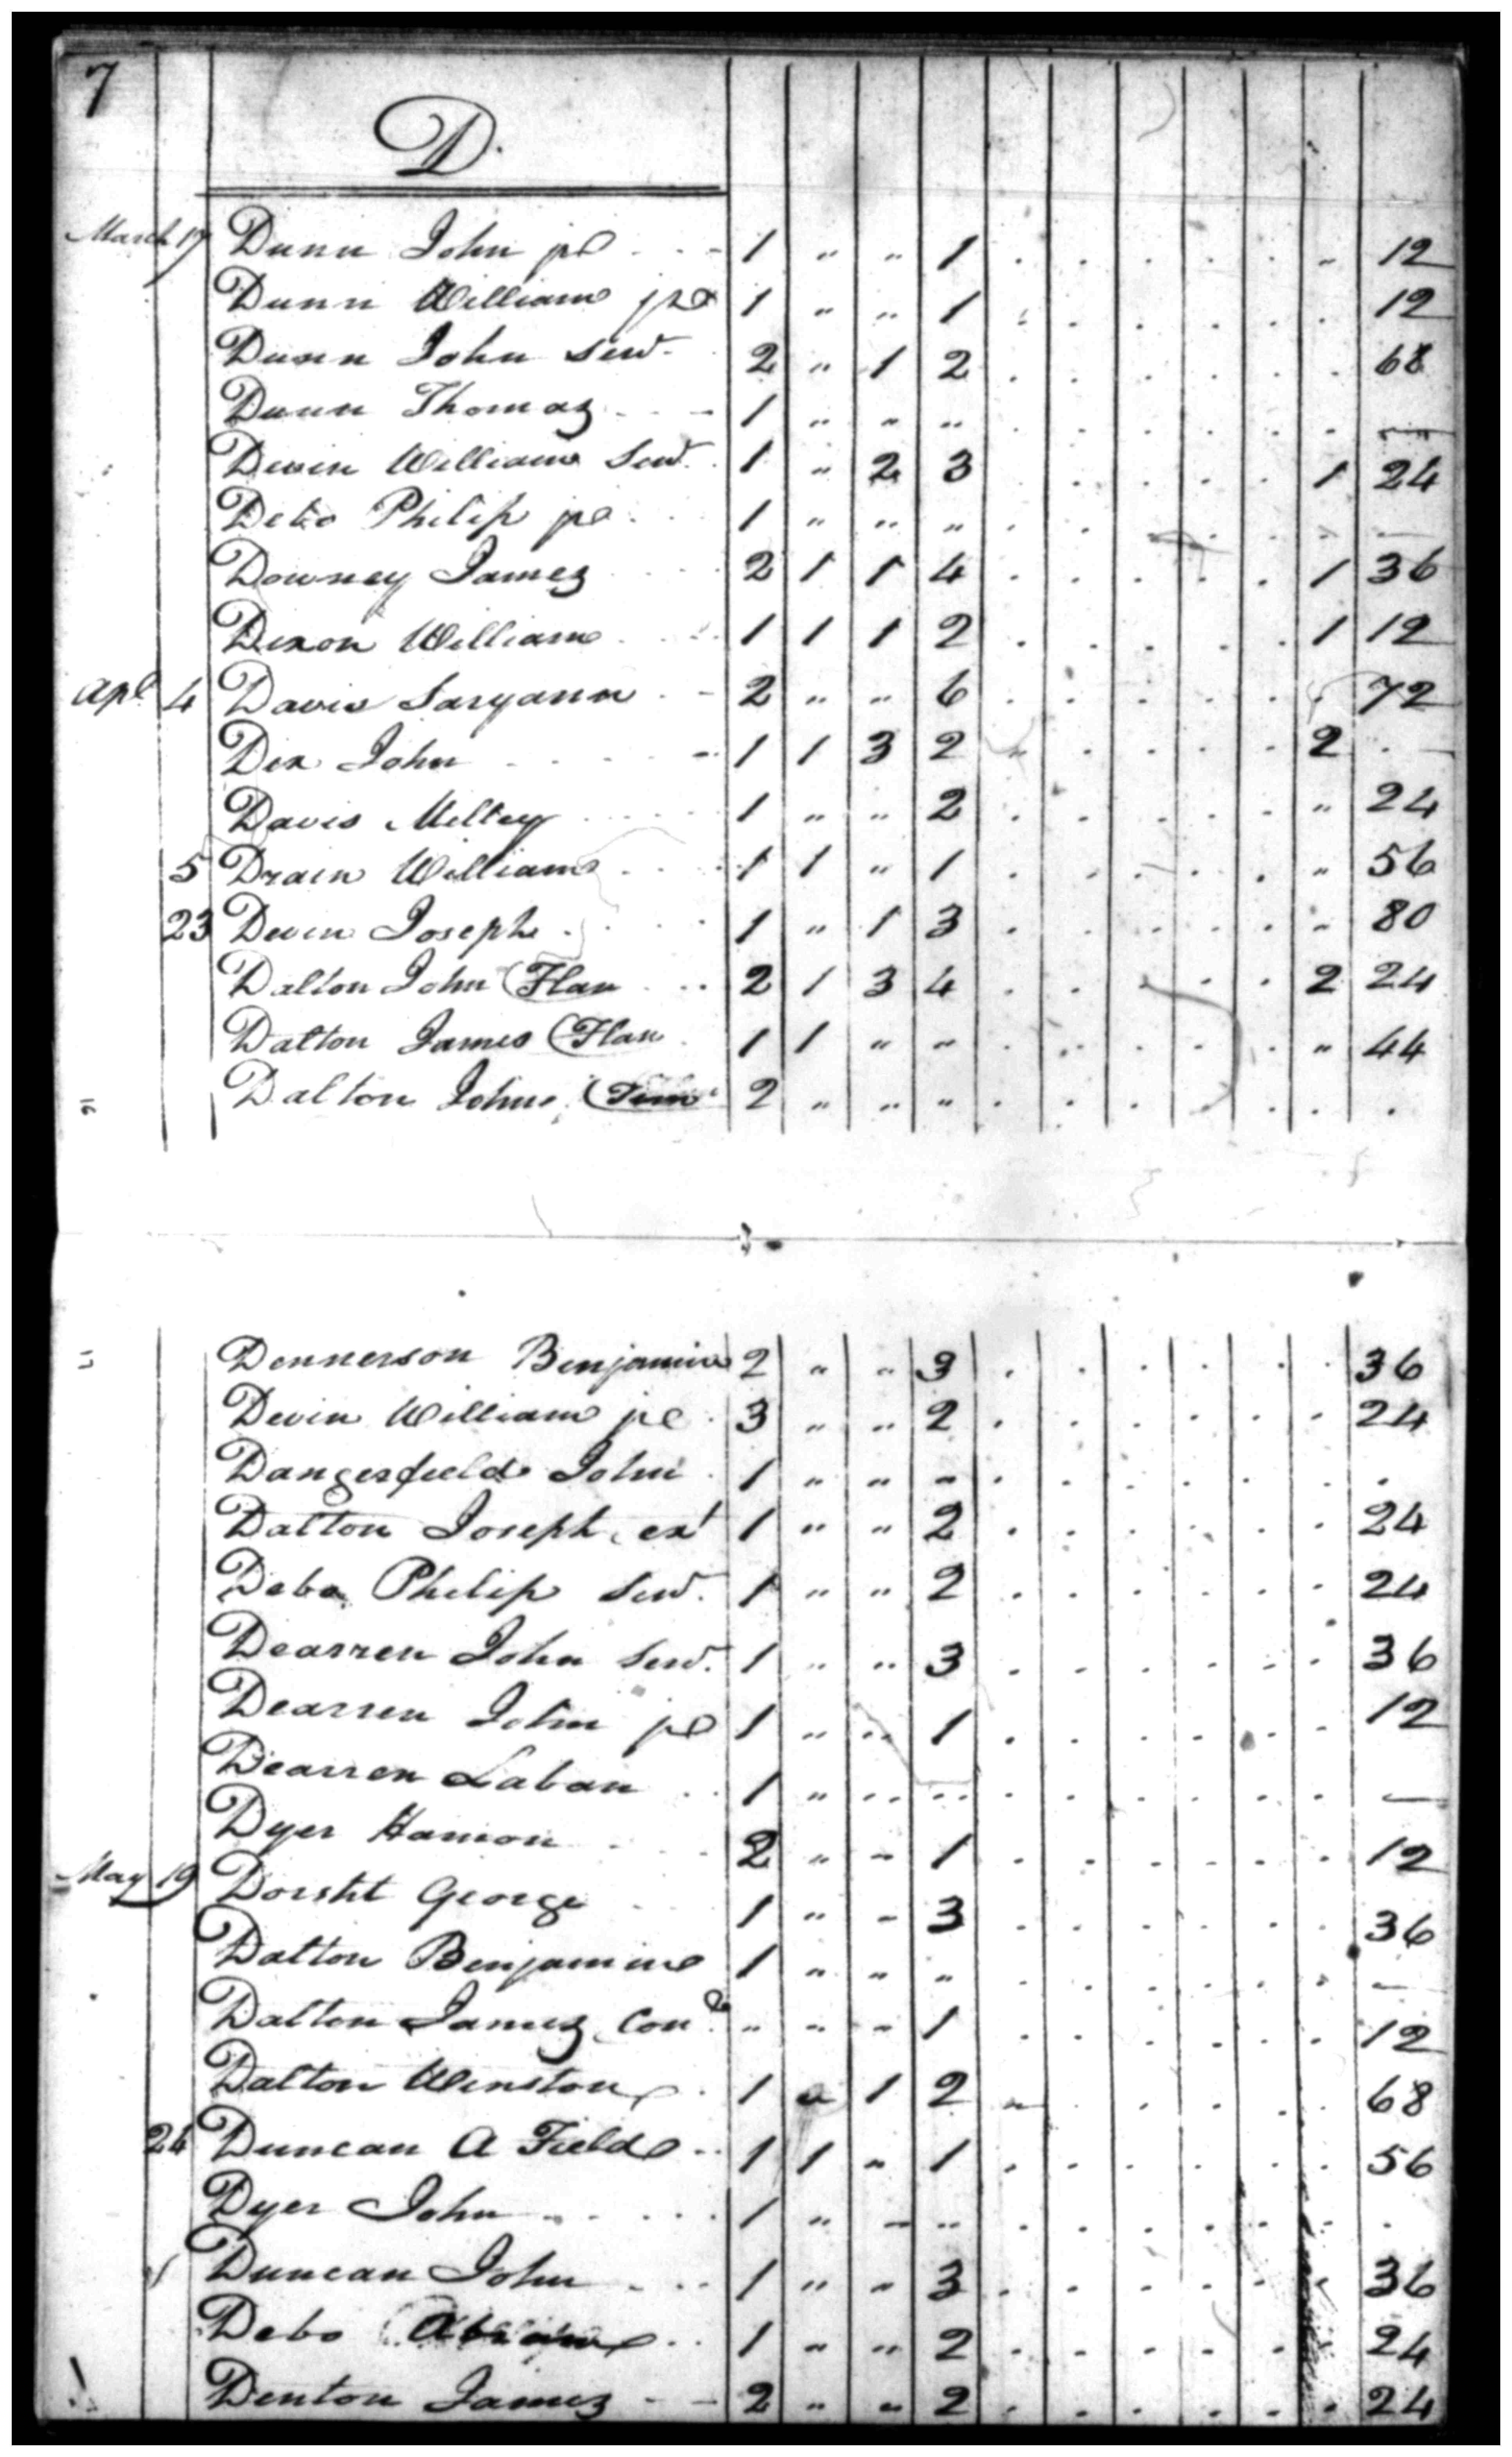 7
D.
March 17 Dunn John jr - 1 " " 1 . . . . . " 12
Dunn William jr 1 " " 1 . . . . . . 12
Dunn John Senr. 2 " 1 2 . . . . . . 68
Dunn Thomas - - 1 " " " . . . . . . -
Devin William Senr. 1 " 2 3 . . . . . 1 24
Debo Philip jr 1 " " " . . . . . . -
Downey James 2 1 1 4 . . . . . 1 36
Dixon William 1 1 1 2 . . . . . 1 12
Apl 4 Davis Saryann - 2 " " 6 . . . . . . 72
Dix John - 1 1 3 2 . . . . . 2 . -
Davis Meltey 1 " " 2 . . . . . " 24
5 Drain William 1 1 " 1 . . . . . " 56
23 Devin Joseph 1 " 1 3 . . . . . " 80
Dalton John (Flan 2 1 3 4 . . . . . 2 24
Dalton James (Flan 1 1 " " . . . . . " 44
Dalton John (Tim 2 " " " . . . . . . .
Dennerson Benjamin 2 " " 3 . . . . . . 36
Devin William jr 3 " " 2 . . . . . . 24
Dangerfield John 1 " " " . . . . . . .
Dalton Joseph, ext 1 " " 2 . . . . . . 24
Debo Philip Senr. 1 " " 2 . . . . . . 24
Dearren John Senr. 1 " " 3 . . . . . . 36
Dearren John jr 1 " " 1 . . . . . . 12
Dearren Laban 1 " " " . . . . . . -
Dyer Hamon 2 " " 1 . . . . . . 12
May 19 Dorsht George 1 " " 3 . . . . . . 36
Dalton Benjamin 1 " " " . . . . . . -
Dalton James, Conr " " " 1 . . . . . . 12
Dalton Winston 1 " 1 2 . . . . . . 68
24 Duncan A Field 1 1 " 1 . . . . . . 56
Dyer John 1 " " " . . . . . . .
Duncan John 1 " " 3 . . . . . . 36
Debo Abraham 1 " " 2 . . . . . . 24
Denton James - - 2 " " 2 . . . . . . 24